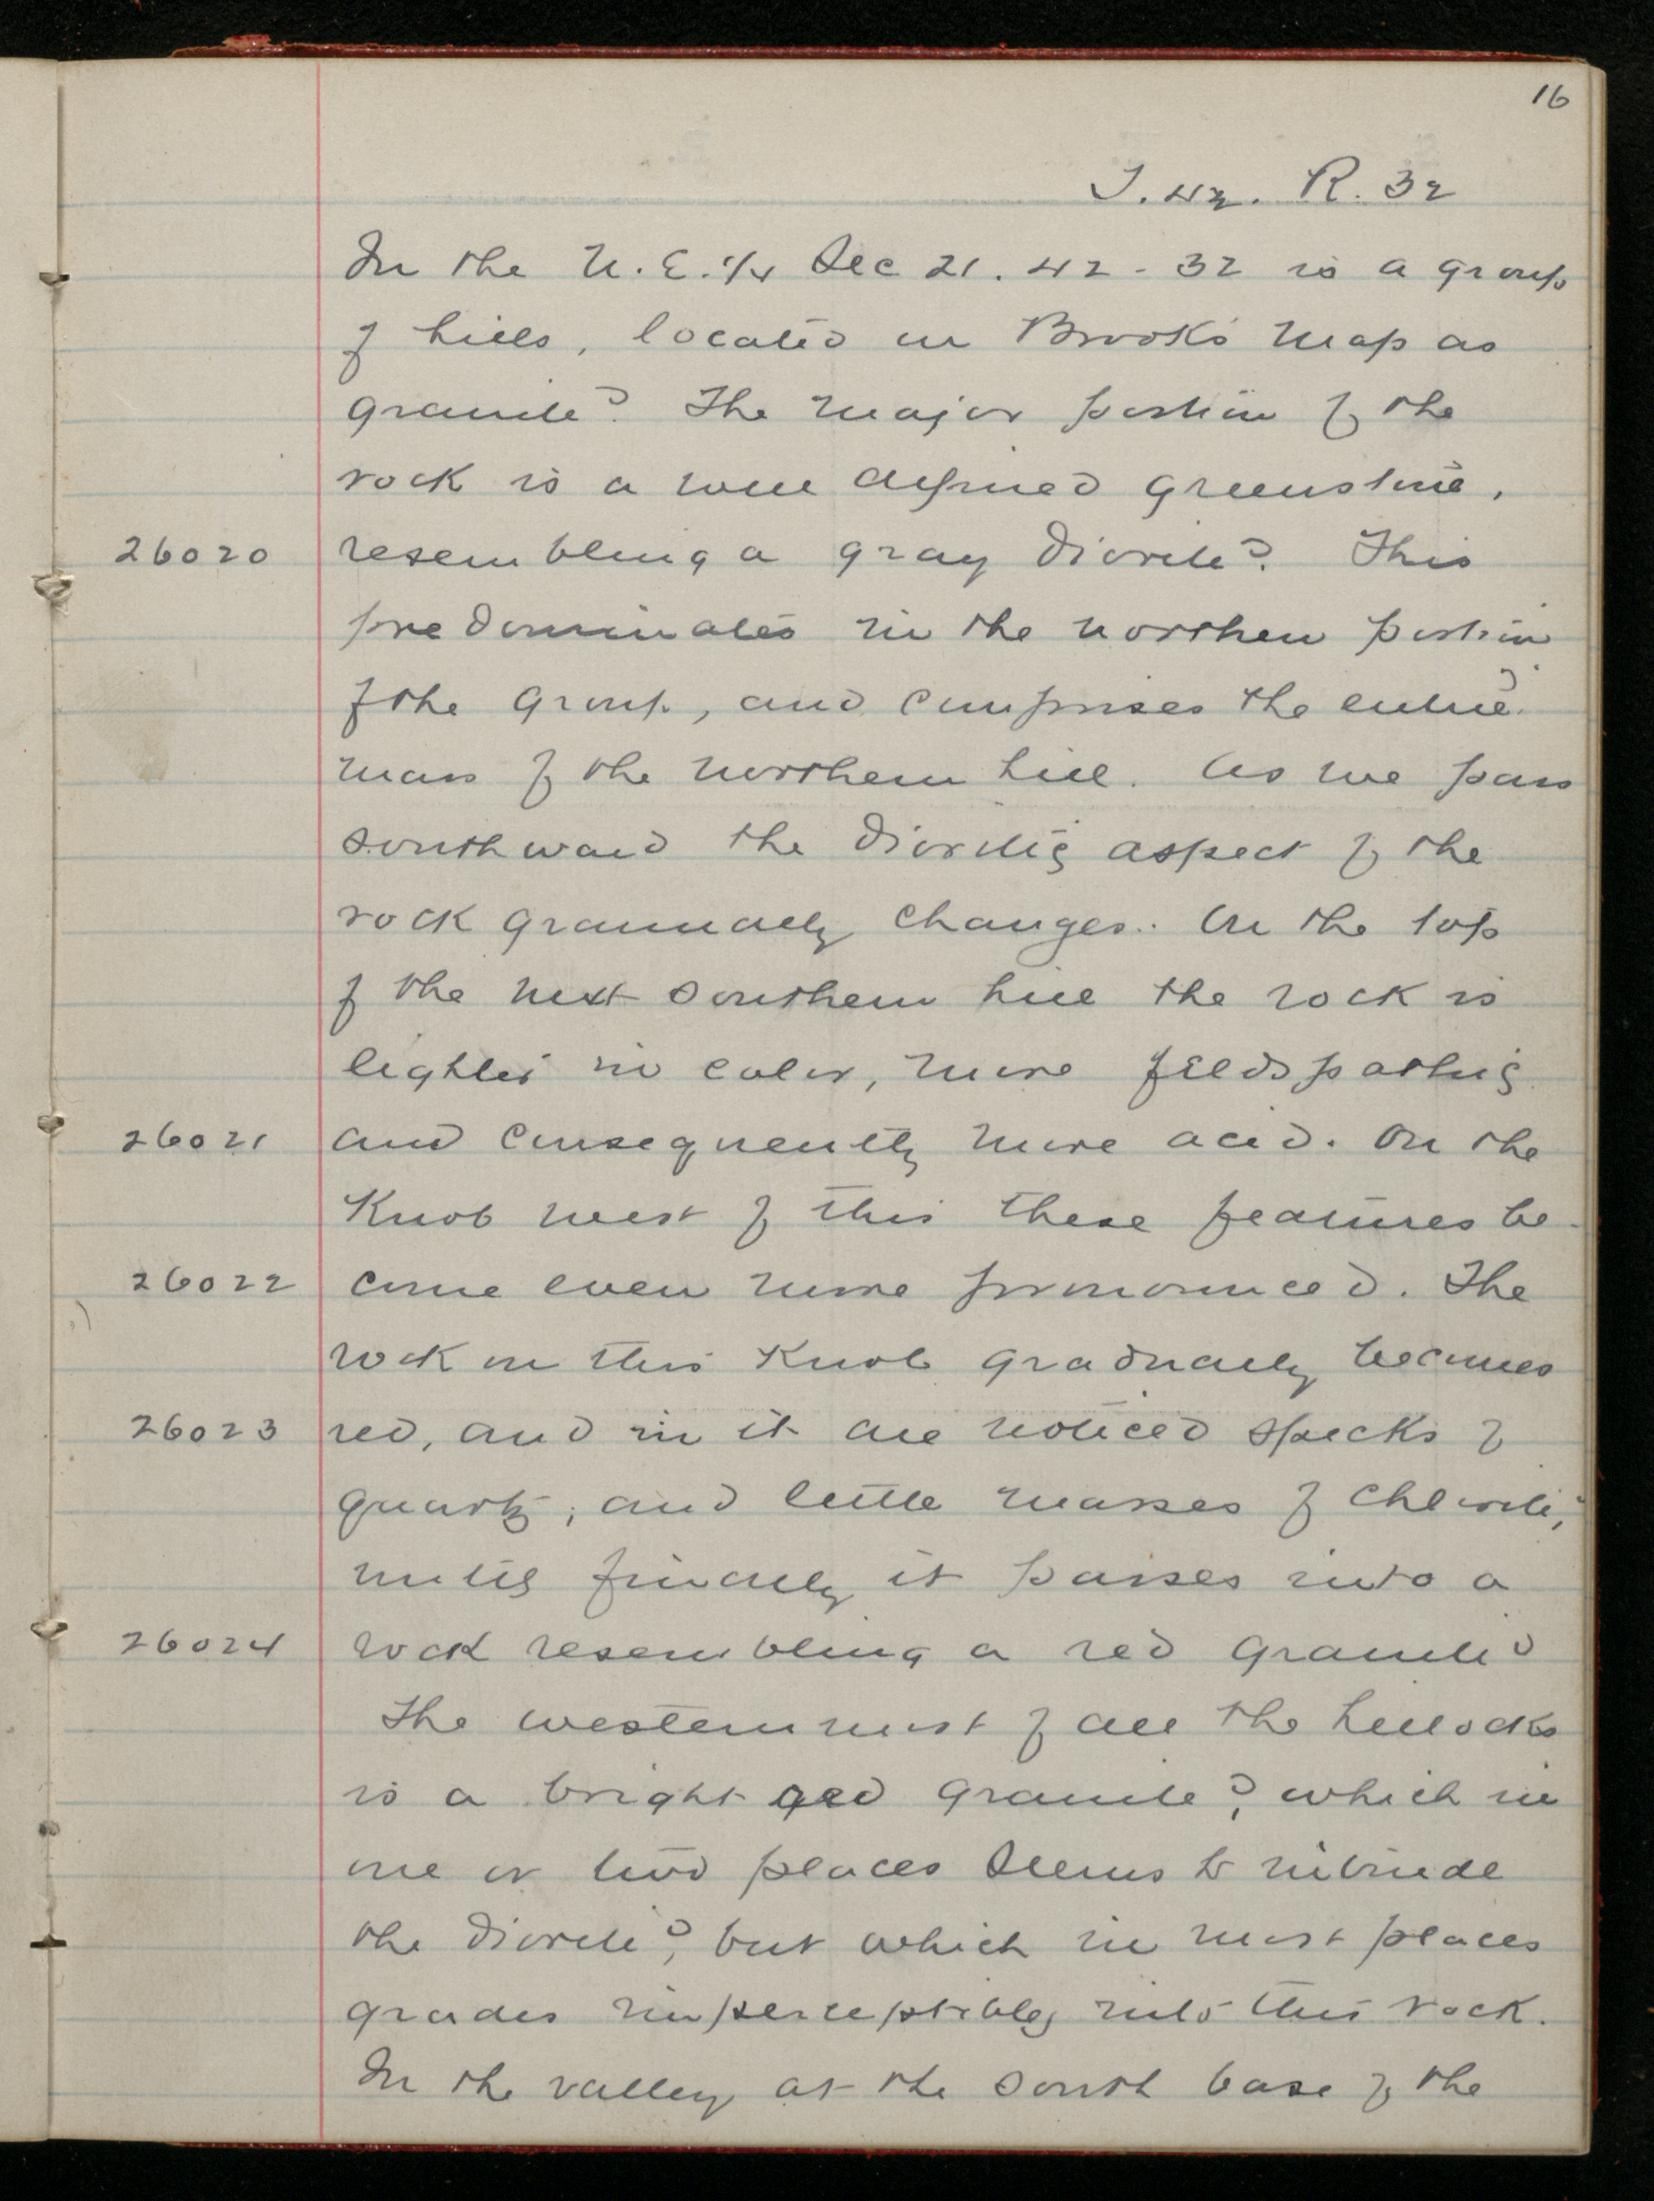 16
T. 42. R. 32
In the N.E. 1/4 Sec 21. 42 - 32 is a group
of hills, located on Brooks map as
granite? The major portion of the
rock is a well defined greenstone,
26020 resembling a gray diorite? This
predominates in the northern portion
of the group, and comprises the entire
mass of the northern hill. As we pass
southward the dioritic aspect of the
rock gradually changes. On the top
of the next southern hill the rock is
lighter in color, more feldspathic
26021 and consequently more acid. On the
Knob west of this these features be-
26022 come even more pronounced. The
rock on this Knob gradually becomes
26023 red, and in it are noticed specks of
quartz, and little masses of chlorite,
until finally it passes into a
26024 rock resembling a red granite?
The westernmost of all the hillocks
is a bright red granite?, which in
one or two places seems to intrude
the diorite?, but which in most places
grades imperceptibly into this rock.
In the valley at the south base of the